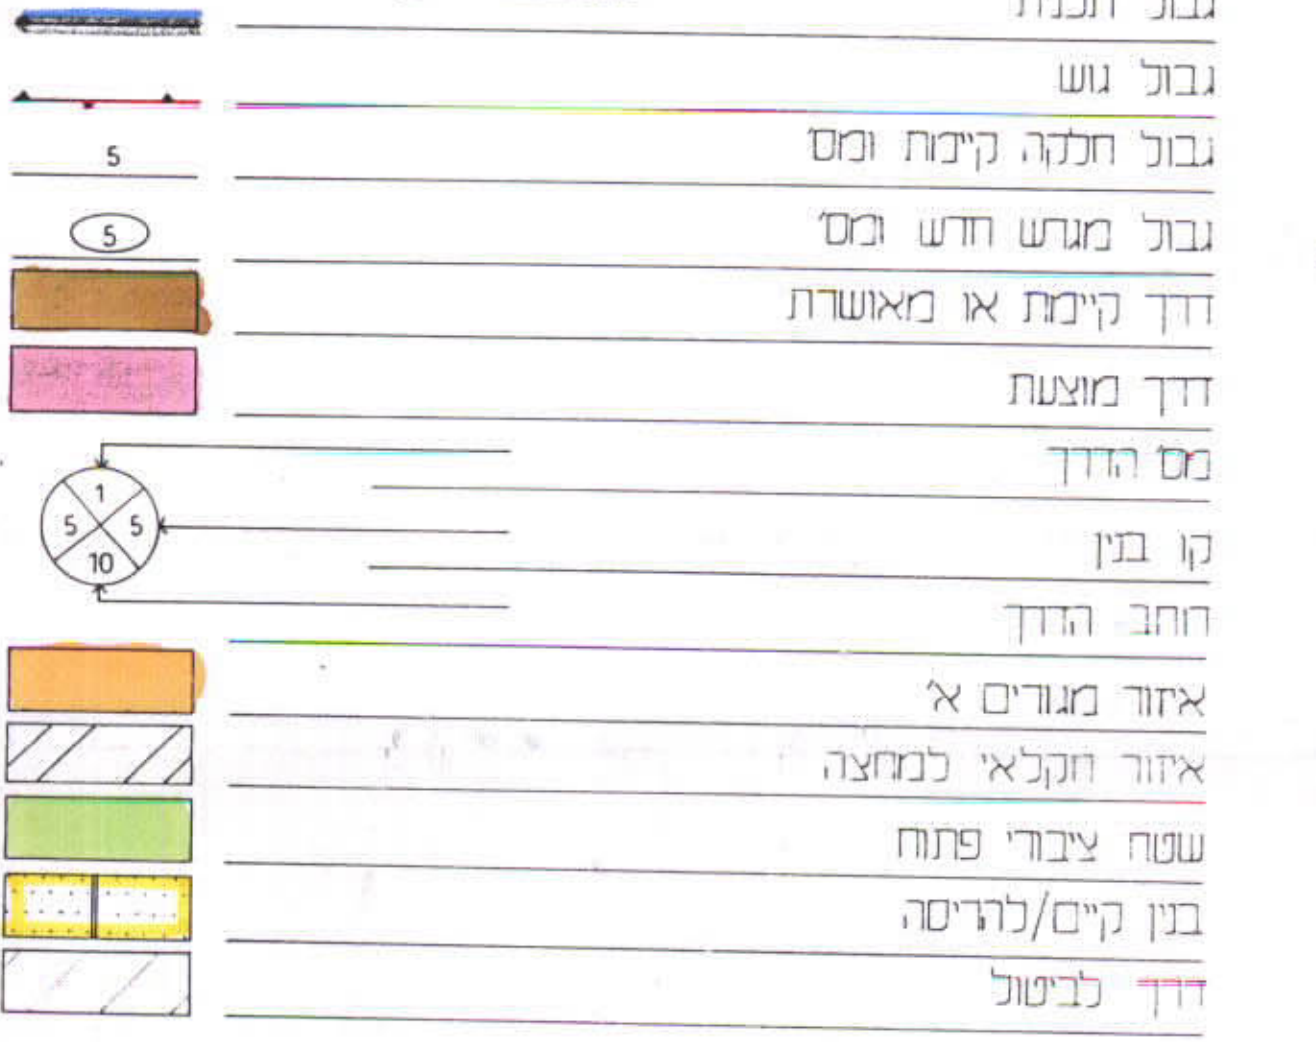 גבול תכנית
גבול גוש
גבול חלקה קיימת ומס'
5
גבול מגרש חדש ומס'
5
דרך קיימת או מאושרת
דרך מוצעת
מס' הדרך
1
קו בנין
5 5
רוחב הדרך
10
איזור מגורים א'
איזור חקלאי למחצה
שטח ציבורי פתוח
בנין קיים/להריסה
דרך לביטול